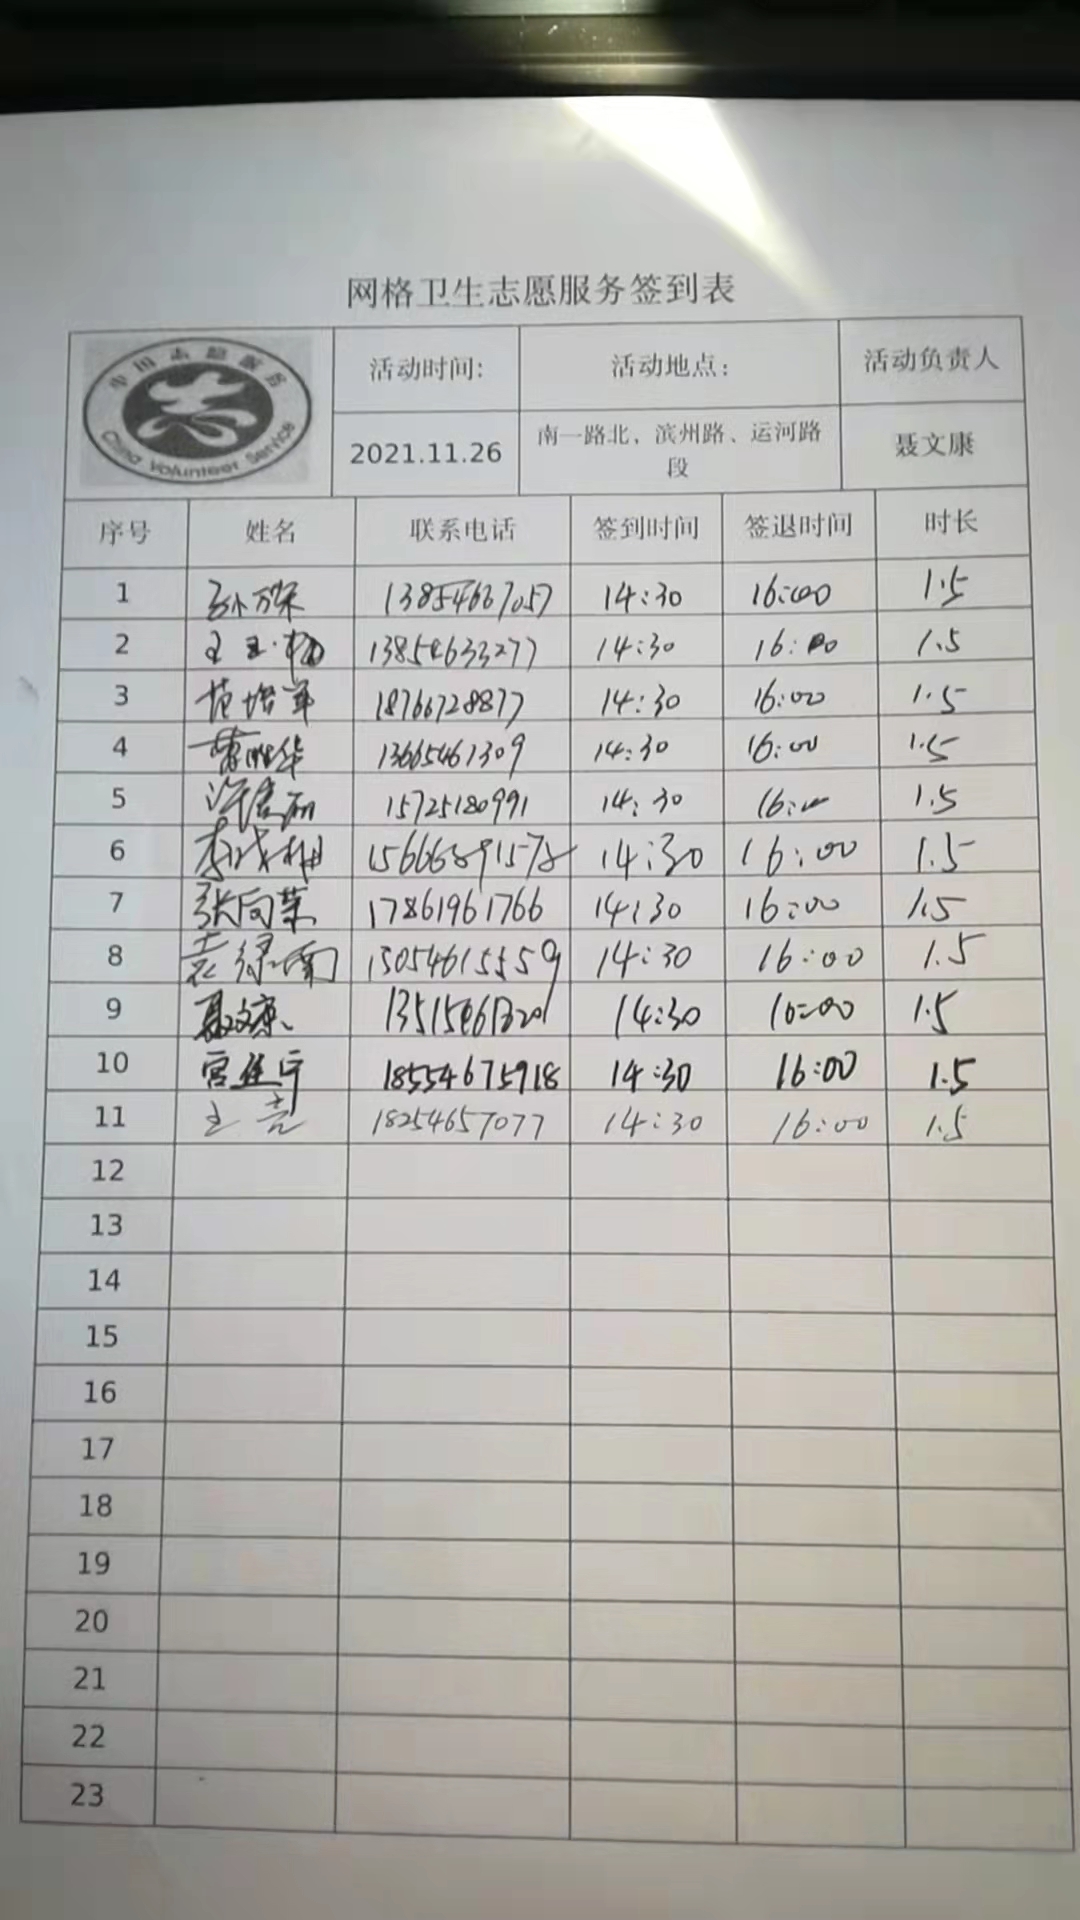 网格卫生志愿服务签到表
中国志愿服务
China Volunteer Service
活动时间: 活动地点: 活动负责人
2021.11.26 南一路北，滨州路、运河路 聂文康
段
序号 姓名 联系电话 签到时间 签退时间 时长
1 14:30 16:00 1.5
2 13854633277 14:30 16:00 1.5
3 范培军 18766728877 14:30 16:00 1.5
4 13665461309 14:30 16:00 1.5
5 15725180991 14:30 16: 1.5
6 14:30 16:00 1.5
7 张向荣 17861961766 14:30 16:00 1.5
8 袁绿南 15054615559 14:30 16:00 1.5
9 聂文康 14:30 16:00 1.5
10 18554675918 14:30 16:00 1.5
11 王亮 18254657077 14:30 16:00 1.5
12
13
14
15
16
17
18
19
20
21
22
23